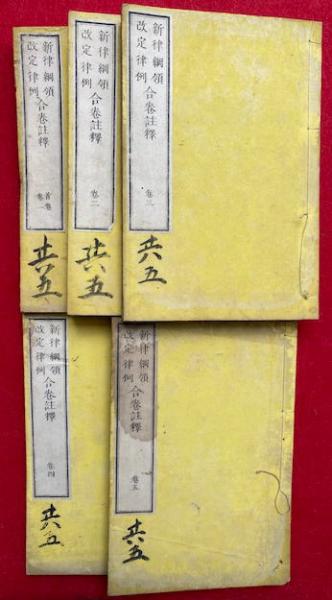 新律綱領
改定律例
合卷註釋
首卷
卷一
共五
新律綱領
改定律例
合卷註釋
卷二
共五
新律綱領
改定律例
合卷註釋
卷三
共五
新律綱領
改定律例
合卷註釋
卷四
共五
新律綱領
改定律例
合卷註釋
卷五
共五